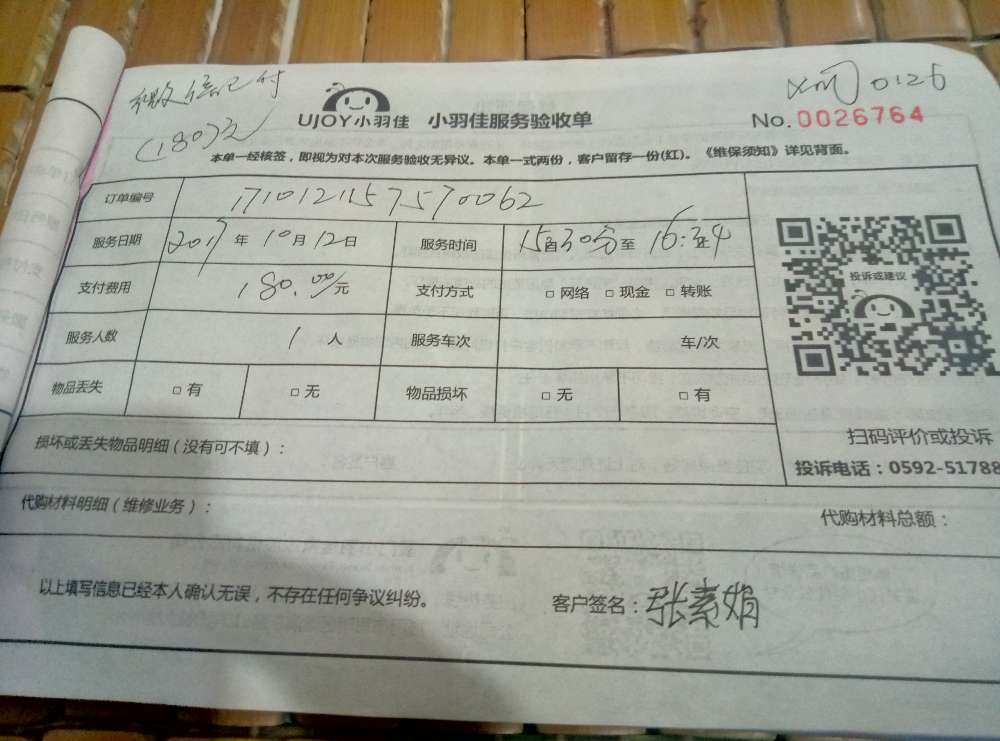 微信已付 xm 0126
(180元)
UJOY小羽佳 小羽佳服务验收单 No. 0026764
本单一经核签，即视为对本次服务验收无异议。本单一式两份，客户留存一份(红)。《维保须知》详见背面。
订单编号 1710121157570062
服务日期 2017 年 10 月 12 日 服务时间 15时30分至 16:34
支付费用 180.00/元 支付方式 □ 网络 □ 现金 □ 转账
服务人数 1 人 服务车次 车/次
物品丢失 □ 有 □ 无 物品损坏 □ 无 □ 有
投诉或建议
损坏或丢失物品明细（没有可不填）：
扫码评价或投诉
投诉电话：0592-51788
代购材料明细（维修业务）： 代购材料总额：
以上填写信息已经本人确认无误，不存在任何争议纠纷。 客户签名：张素娟